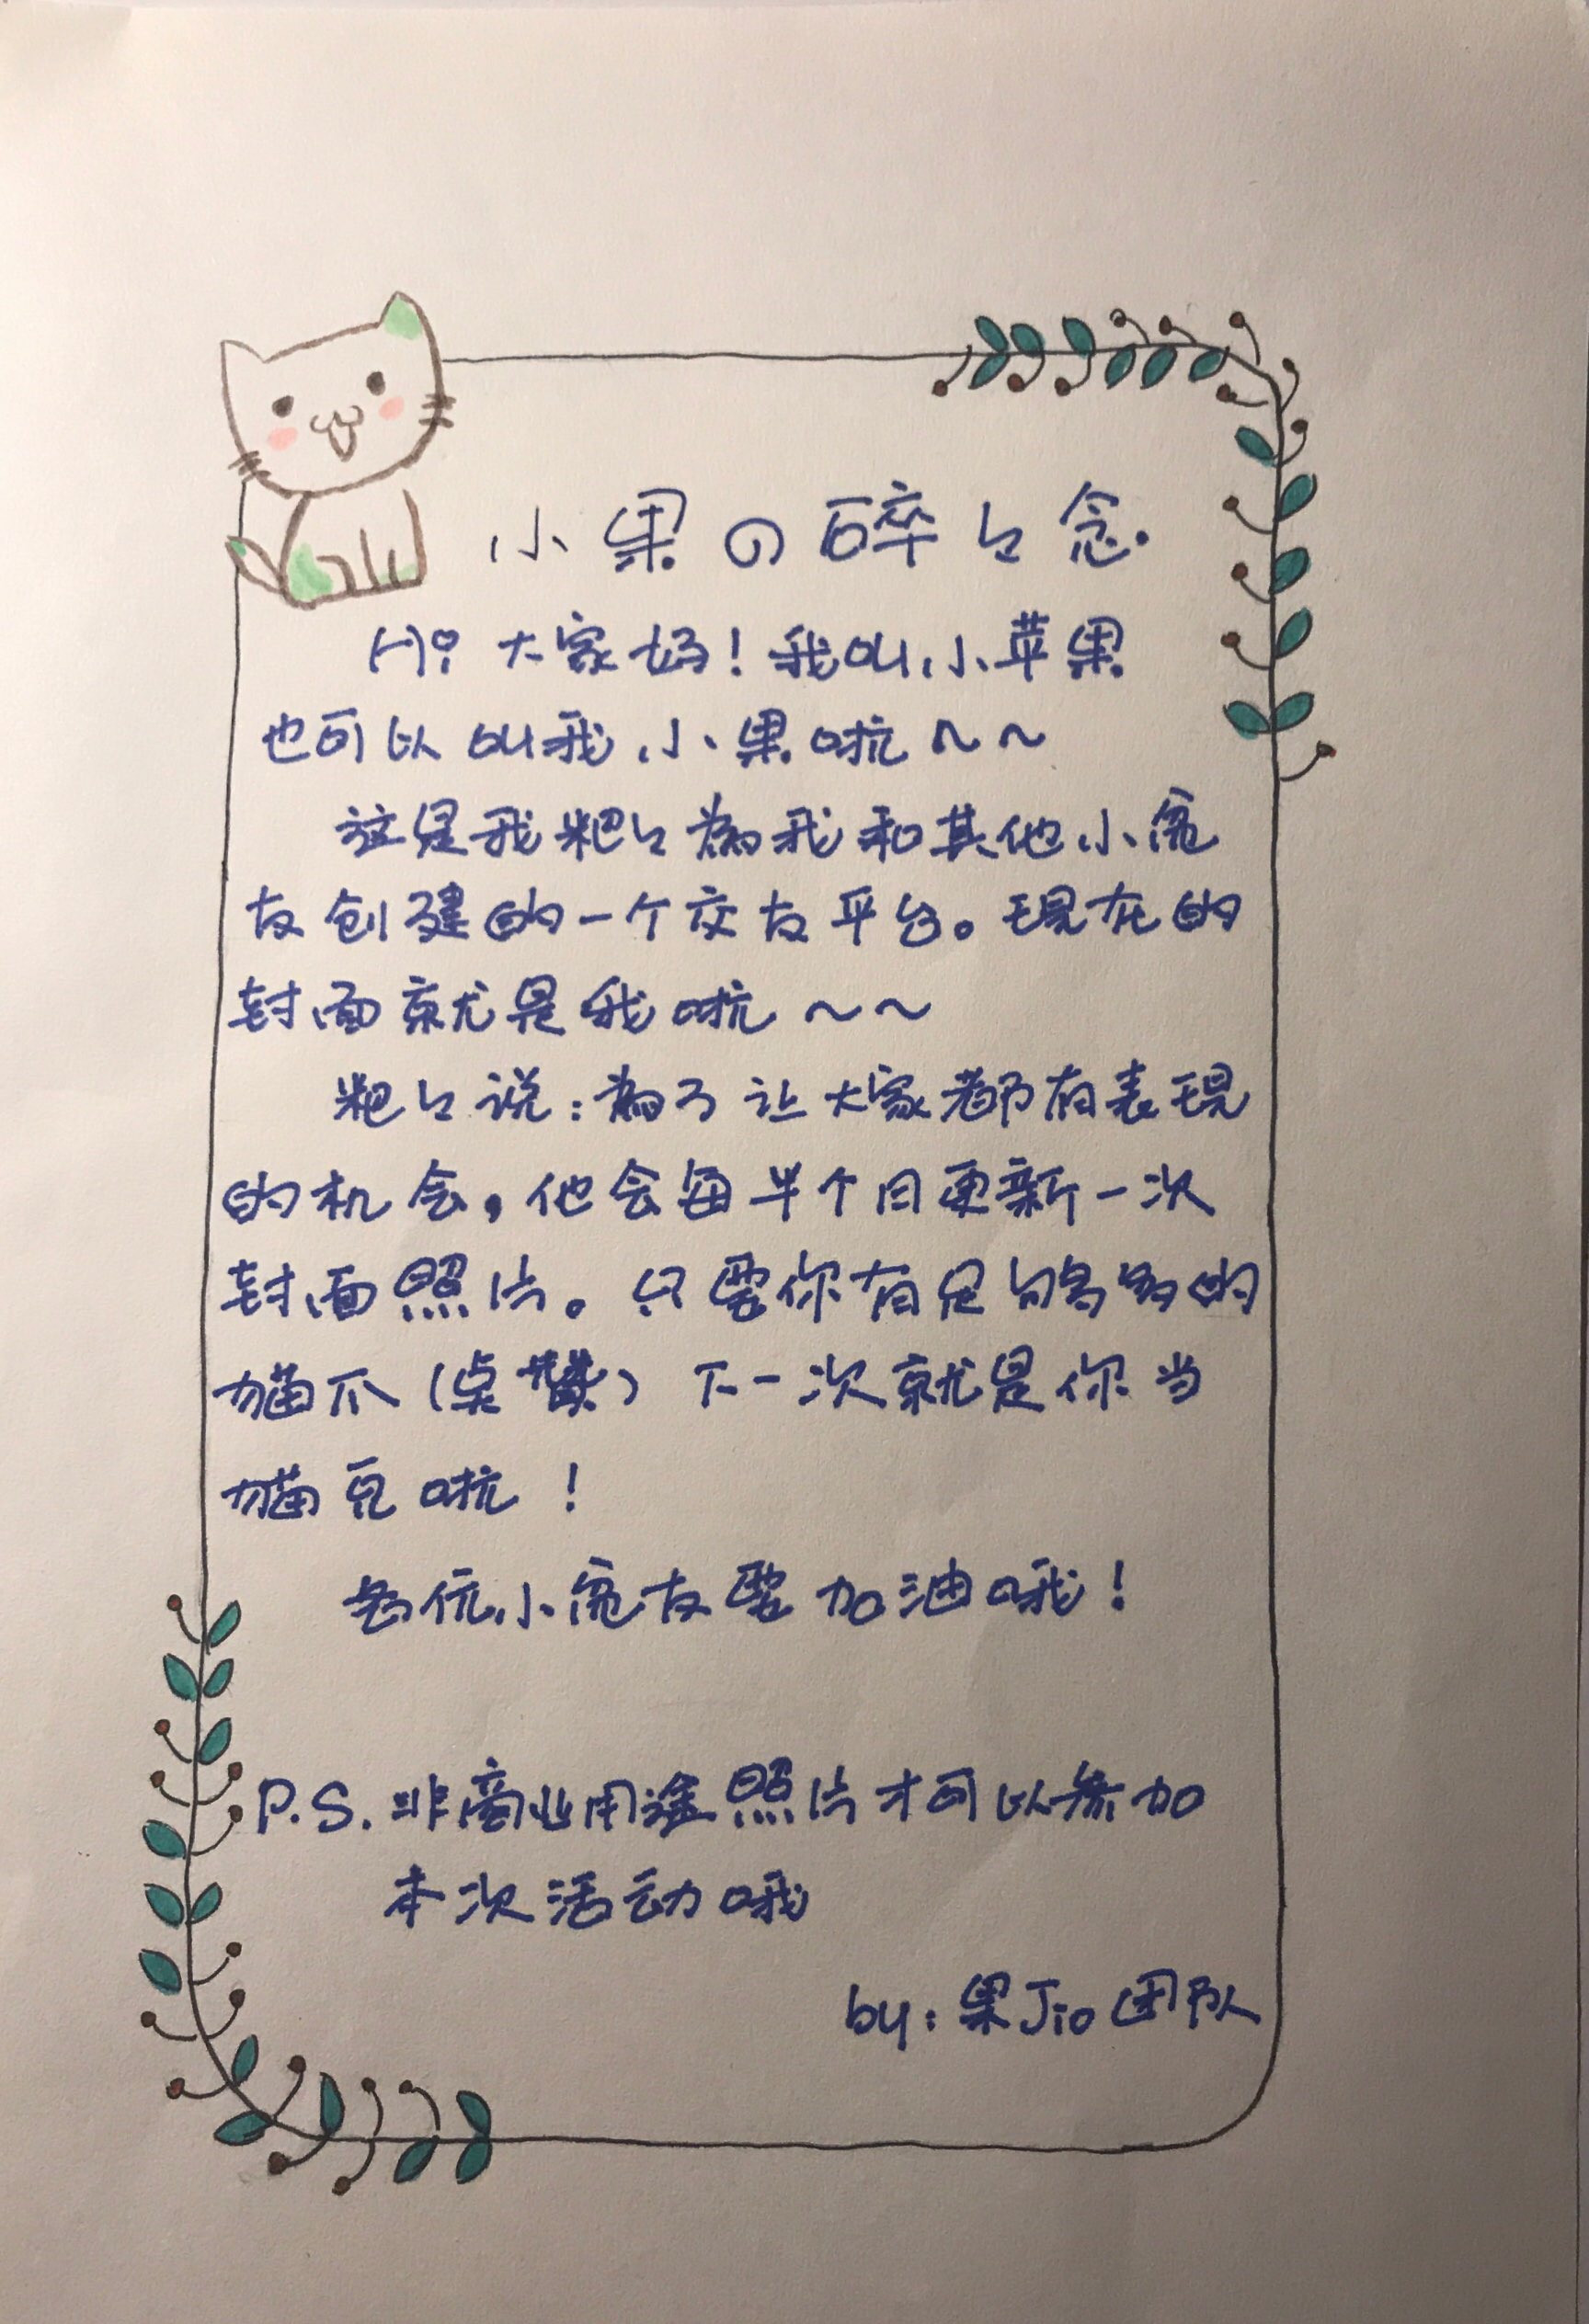 小果の碎々念.
Hi: 大家好！我叫小苹果
也可以叫我小果啦～～
这是我粑々為我和其他小宠
友创建的一个交友平台。现在的
封面就是我啦～～
粑々说：為了让大家都有表现
的机会，他会每半个月更新一次
封面照片。只要你有足够多的
猫爪（点赞）下一次就是你当
猫豆啦！
各位小宠友要加油哦！
P.S. 非商业用途照片才可以参加
本次活动哦
by: 果Jio团队